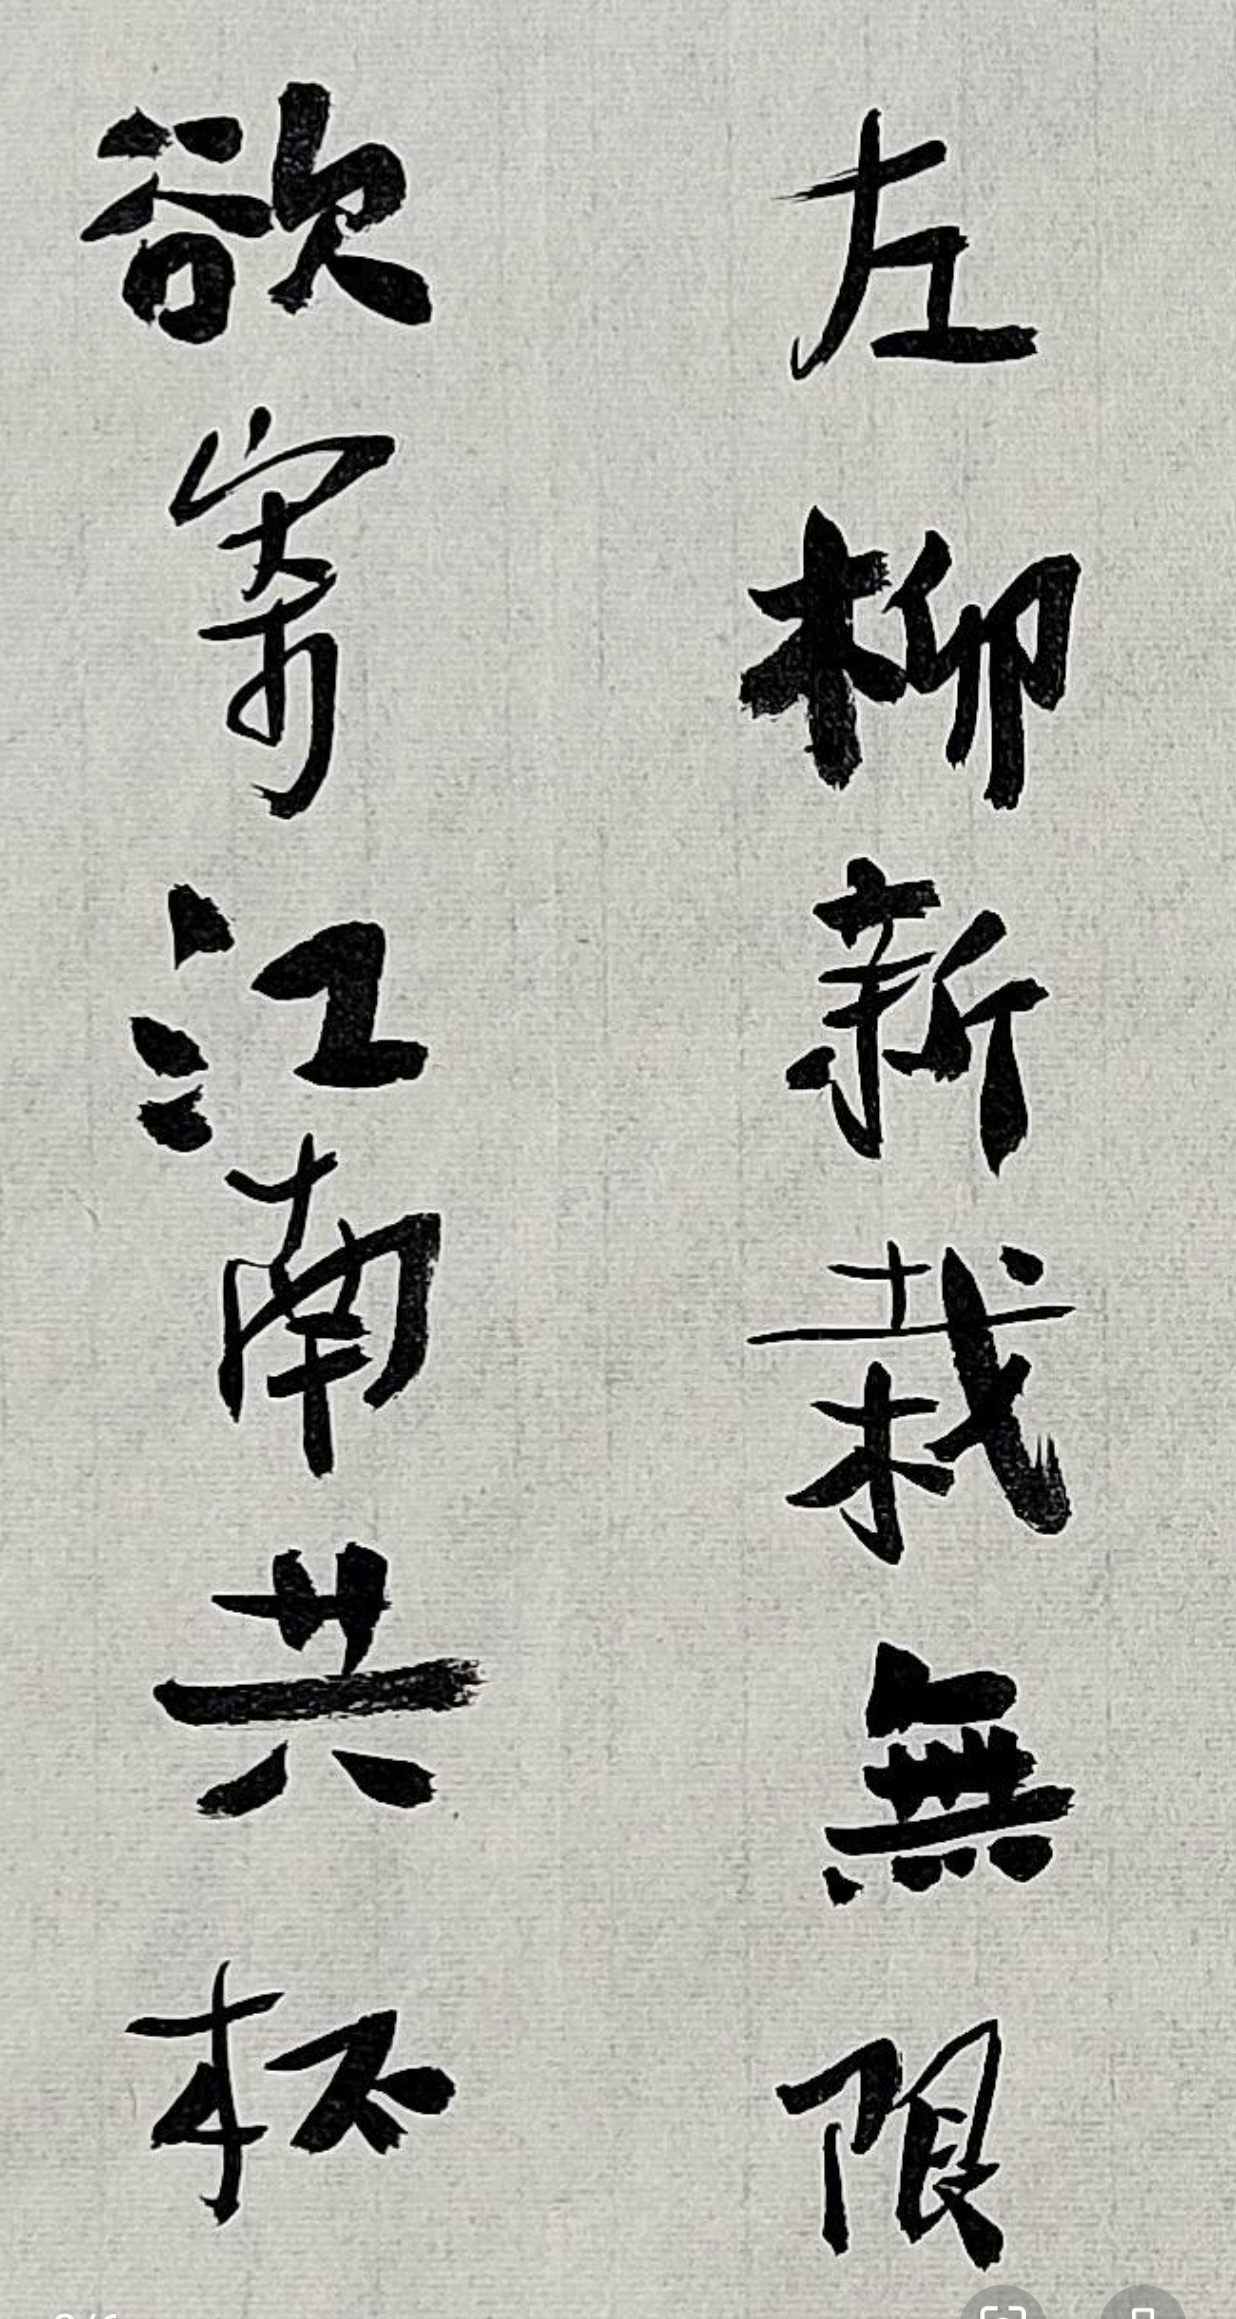 左柳新栽無限
欲寄江南共杯